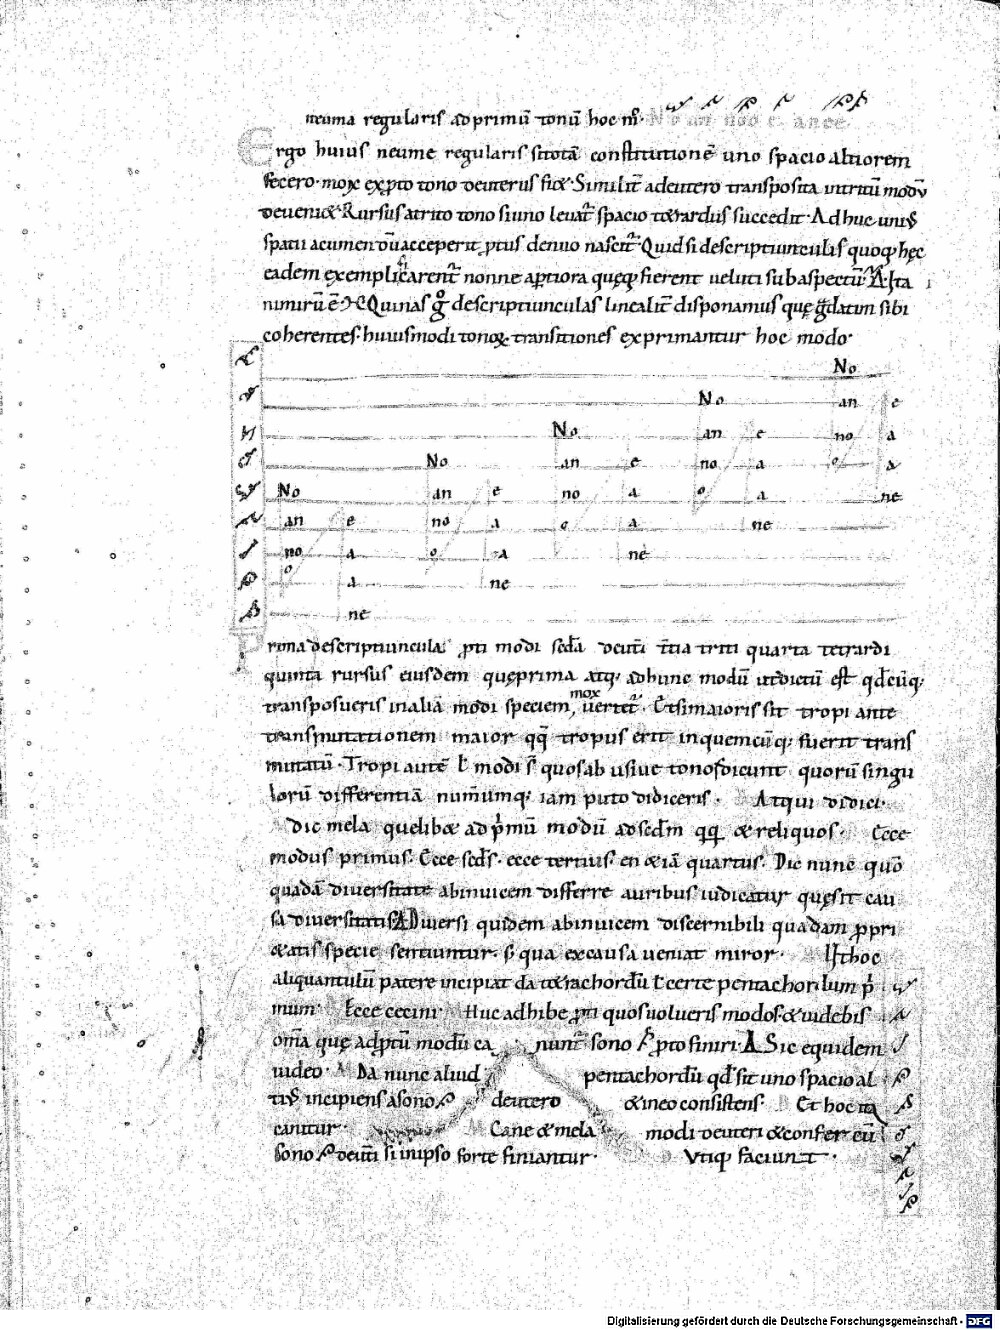 neuma regularis ad primū tonū hoc mͦ. No an no o e a nee
Ergo huius neume regularis si totā constitutionē uno spacio altiorem
fecero. mox ex p̱to tono deuterus fi&. Similit̄ a deutero transposita in tritū modū
deueni&. Rursus a trito tono si uno leuat̄ spacio t&rardus succedit. Adhuc uniꝰ
spatii acumen dū acceperit p̱tus denuo nascit̄. Quid si descriptiunculis quoq; hęc
eadem exemplicarent̄ nonne aptiora quęq; fierent ueluti sub aspectū. Δ. Ita
nimirū ē. Quinas g̊ descriptiunculas linealit̄ disponamus quę g̅datim sibi
coherentes. huiusmodi tonoꝝ transitiones exprimantur hoc modo.
No
No an e
No an e no a
No an e no a o a
No an e no a o a ne
an e no a o a ne
no a o a ne
o a ne
ne
Prima descriptiuncula p̱ti modi scd̄a deut̄i t̄tia triti quarta tetrardi
quinta rursus eiusdem quę prima atq; ad hunc modū ut dictū est qd̄cūq;
transposueris in aliā modi speciem, mox uertet̄. Et si maioris sit tropi ante
transmutationem maior qq̄ tropus erit in quemcūq; fuerit trans
mutatū. Tropi autē ł modi s̄ quos abusiue tonos dicunt quorū singu
lorū differentiā numerumq; iam puto didiceris. Atqui didici.
Dic mela quelib& ad p̱mū modū ad scd̄m qq̄ & reliquos. Ecce
modus primus. Ecce scd̄s. ecce tertius. en & iā quartus. Dic nunc quō
quadā diuersitate abinuicem differre auribus iudicatur quę sit cau
sa diuersitatis. Δ Diuersi quidem abinuicem discernibili quadam p̱pri
&atis specie sentiuntur. s; qua ex causa ueniat miror. Ut hoc
aliquantulū patere incipiat da t&rachordū ł certe pentachordum p̱
mum. Ecce cecini. Huc adhibe p̱ti quos uolueris modos. & uidebis
om̄a quę ad p̱tū modū canunt̄ sono p̱to finiri. Δ Sic equidem
uideo. M Da nunc aliud pentachordū qd̄ sit uno spacio al
tiꝰ incipiens a sono deutero & in eo consistens. Et hoc ita
canitur. Cane & mela modi deuteri & confer eū
sono deut̄i si in ipso forte finiantur. Utiq; faciunt.
Digitalisierung gefördert durch die Deutsche Forschungsgemeinschaft - DFG